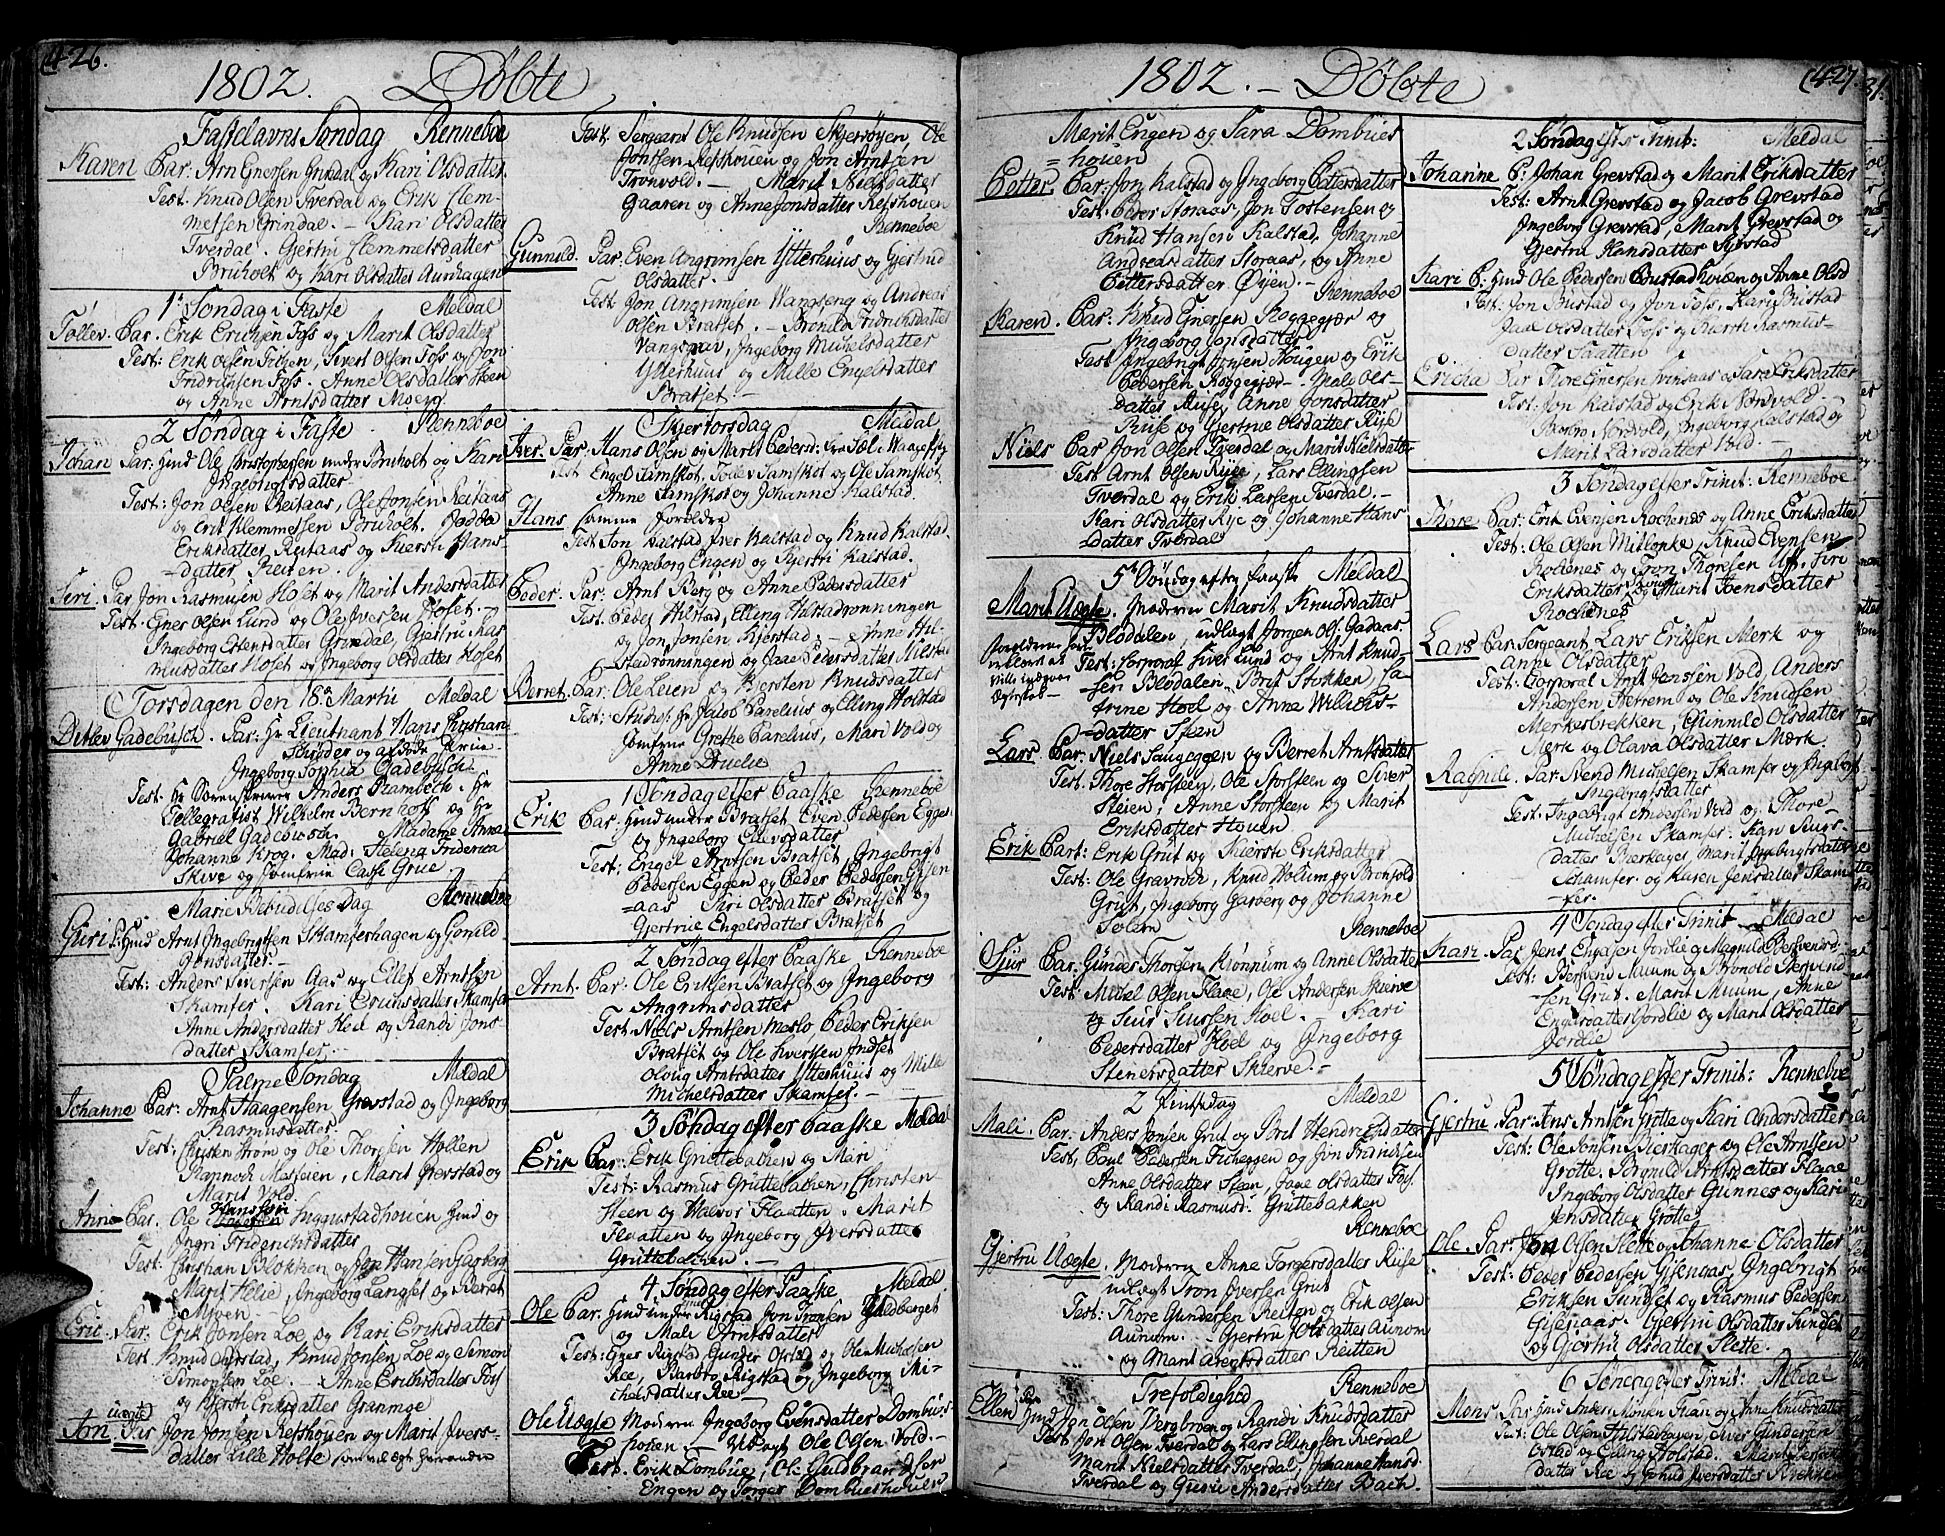 426.
1802. Döbte
Fastelavns Söndag Renneboe
Karen Par: Arn Ejnersen Grindal og Kari Olsdatter.
Test. Knud Olsen Tverdal og Erik Clem-
metsen Grindal. - Kari Olsdatter
Tverdal. Gjertru Clemmetsdatter
Bruholt og Kari Olsdatter Aunhagen
1. Söndag i Faste Meldal
Tollev. Par. Erik Erichsen Foss og Marit Olsdatter
Test: Erik Olsen Frigen, Sivert Olsen Foss og Jon
Fridrichsen Foss. Anne Olsdatter Steen
og Anne Arntsdatter Moen.
2 Söndag i Faste. Renneboe
Johan Par: Hmd Ole Christophersen under Bruholt og Kari
Ingebrigtsdatter
Test: Jon Olsen Reitaas, Ole Jonsen Reitaas
og Erik Klemmetsen Bruholt.
Eriksdatter Reitaas og Kiersti Hans-
datter
Siri. Par Jon Rasmusen Hoset og Marit Andersdatter
Test: Ejner Olsen Lund og Ole Iversen Hoset.
Ingeborg Estensdatter Grindal, Gjertru Ras
musdatter Hoset og Ingeborg Olsdatter Hoset
Torsdagen den 18. Martii Meldal
Ditlev Gadebusch. Par: Hr Lieutnant Hans Christian
Schröder og
Ingeborg Sophia Gadebusch
Test: Hr Sorenskriver Anders Rambech. Hr
Tellegrafist Wilhelm Bernhoft og Hr
Gabriel Gadebusch Madame Anna
Johanne Krog. Mad: Helena Friderica
Skive og Jomfrue Cathr Grue
Marie Bebudelses Dag Renneboe
Guri P: Hmd Arnt Ingebrigtsen Skamferhagen og Gonild
Jonsdatter. -
Test: Anders Iversen Aas og Ellef Arntsen
Skamfer. Kari Erichsdatter Skamfer
Anne Andersdatter Hed og Randi Jons-
datter Skamfer.
Palme Söndag Meldal
Johanne Par: Arnt Haagensen Grevstad og Ingeborg
Rasmusdatter
Test: Christen Strøm og Ole Thorsen Hollen
Rannoch Mosseien, Marit Grevstad og
Marit Vold.
Anne Par. Ole Hanssen Huggustadhouen Hmd og
Ingri Friderichsdatter
Test: Christian Blokken og Jon Hansen Garberg
Marit Helie, Ingeborg Langset og Berret
Moen
Eric. Par: Erik Jonsen Loe og Kari Eriksdatter
Test. Knud Opstad, Knud Jonsen Loe og Simon
Simonsen Loe. - Anne Eriksdatter Foss
og Kjersti Eriksdatter Granmoe
(uægte)
Arn Par Jon Jonsen Refshouen og Marit Ivers-
datter Lille Holte som vil ægte hverandre
Test. Sergeant Ole Knudsen Skjersöyen, Ole
Jontsen Refshouen og Jon Arntsen
Tronvold. - Marit Nielsdatter
Gaaren og Anne Jonsdatter Refshouen
Renneboe
Gunnild. Par. Even Angrimsen Ytterhuus og Gjertrud
Olsdatter.
Test. Jon Angrimsen Vangseng og Andreas
Olsen Bratset. - Bronila Fridrichsdatter
Vangseng, Ingeborg Michelsdatter
Ytterhuus og Mille Engelsdatter
Bratset. -
Skjertorsdag Meldal
Iver. Par. Hans Olsen og Marit Pedersd:
Test Engel Lamskot, Tollev Lamskot og Ole Lamskot
Anne Lamskot og Johanne Kalstad.
Hans samme Foreldre
Test Jon Kalstad Iver Kalstad og Knud Kalstad.
Ingeborg Engen og Kjerstri Kalstad.
Peder. Par: Arnt Berg og Anne Pedersdatter
Test: Peder Hilstad, Elling Hilstadrønningen
og Jon Jonsen Kjerstad. - Anne Hil-
stadrönningen og Jaae Pedersdatter Hilstad
Berret. Par: Ole Leien og Kjersten Knudsdatter
Test: Studios: Hr Jacob Parelius og Elling Holstad
Jomfrue Grethe Parelius, Mari Vold og
Anne Druelie
1 Söndag efter Paaske Renneboe
Erik Par: Hmd under Bratset Even Pedersen Eggen
og Ingeborg Ellevsdatter
Test: Engel Arntsen Bratset, Ingebrigt
Pedersen Eggen og Peder Pedersen Gisen
=aas Siri Olsdatter Bratset og
Gjertrue Engelsdatter Bratset
2 Söndag efter Paaske Renneboe
Arnt. Par: Ole Eriksen Bratset og Ingeborg
Angrimsdatter
Test Niels Arntsen Meslo Peder Eriksen
Bratset og Ole Sivertsen Indset
Olvig Arntsdatter Ytterhuus og Mille
Michelsdatter Skamfer. -
3 Söndag efter Paaske Meldal
Erik Par: Erik Gruttebachen og Mari
Test: Rasmus Gruttebachen, Christen
Steen og Halvor Flaatten. Marit
Flaatten og Ingeborg Iversdatter
Gruttebachen. -
4 Söndag efter Paaske Meldal
Ole Par: Hmd under Rigstad Jon Tronsen
og Mali Arntsdatter
Test: Ejner Rigstad Gunder Olstad og Ole Michelsen
Ree, Barbro Rigstad og Ingeborg Mi-
chelsdatter Ree
Ole Uægte Moderen Ingeborg Evensdatter Dombues-
houen - Udlagt Ole Olsen Vold. -
Test. Erik Dombue, Ole Guldbrandsen
Engen og Torger Dombueshouen
1802. - Döbte (427.
Marit Engen og Sara Dombues
=houen
Petter Par: Jon Kalstad og Ingeborg Pettersdatter
Test: Peder Storaas, Jon Tostensen og
Knud Hansen Kalstad, Johanne
Andreasdatter Storaas, og Anne
Pettersdatter Øyen. - Renneboe
Karen. Par: Knud Ejnersen Roggegjær og
Ingeborg Jonsdatter
Test Ingebrigt Jonsen Hougen og Erik
Pedersen Roggegjær - Mali Ols-
datter Ruse, Anne Jonsdatter
Ruse og Gjertrue Olsdatter Ruse
Niels Par Jon Olsen Tverdal og Marit Nielsdatter
Test Arnt Olsen Ruse, Lars Ellingsen
Tverdal og Erik Larsen Tverdal. -
Kari Olsdatter Ruse og Johanne Hans
datter Tverdal
5 Söndag efter Paaske Meldal
Marit Uægte. Moderen Marit Knudsdatter
Blodalen, udlagt Jorgen Ols: Gadaas.
Test: Corporal Siver Lund og Arnt Knud-
sen Blodalen, Brit Stokken, Ca-
trine Hoel og Anne Willads-
datter Steen
Lars Par: Niels Saugeggen og Berret Arntsdatter
Test. Thore Storsteen, Ole Storsteen og Siver
Steien, Anne Storsteen og Marit
Eriksdatter Houen
Erik Part: Erik Grut og Kiersti Eriksdatter
Test: Ole Gravrok, Knud Holum og Bronild
Grut, Ingeborg Garberg og Johanne
Solem Renneboe
Sjur Par: Gunder Thoresen Krönnum og Anne Olsdatter
Test: Michel Olsen Flaae, Ole Andersen Skierve
og Siur Siursen Hoel. - Kari
Pedersdatter Hoel og Ingeborg
Stenersdatter Skierve. -
2 Pintsdag Meldal
Mali. Par: Anders Jonsen Grut og Brit Hendrichsdatter
Test, Poul Pedersen Ficheggen og Jon Frandsen
Anne Olsdatter Steen, Jaae Olsdatter Foss
og Randi Rasmusd: Gruttebakken
Renneboe
Gjertru Uægte. Moderen Anne Torgersdatter Ruse
udlagt Tron Iversen Grut
Test: Thore Gundersen Reiten og Erik Olsen
Aunom. - Gjertru Olsdatter Aunom
og Marit Arentsdatter Reitten
Trefoldighed Renneboe
Ellen Par Hmd Jon Olsen Vergbroen og Randi Knudsdatter
Test Jon Olsen Tverdal og Lars Ellingsen Tverdal
Marit Nielsdatter Tverdal, Johanne Hansd
Tverdal og Guru Andersdatter Bach.
2 Söndag efter Trinit: Meldal
Johanne P: Johan Grevstad og Marit Eriksdatter
Test: Arnt Grevstad og Jacob Grevstad
Ingeborg Grevstad, Marit Grevstad og
Gjertru Hansdatter Kjerstad
Kari P: Hmd Ole Pedersen Bustadhouen og Anne Olsd
Test: Jon Bustad og Jon Foss, Kari Bustad
Jaae Olsdatter Foss og Kiersti Rasmus-
datter Saatten
Ericha Par Thore Ejnersen Svinsaas og Sara Eriksdatter
Test: Jon Kalstad og Erik Nordvold.
Barbro Nordvold, Ingeborg Kalstad og
Marit Larsdatter Vold. -
3 Söndag efter Trinit: Renneboe
Thore Par: Erik Evensen Rodenes og Anne Eriksdatter
Test: Ole Olsen Mitlopke, Knud Evensen
Rodenes og Tron Thoresen Uff. Siri
Eriksdatter Skoug Marit Joensdatter
Rodenes
Lars Par Sergeant Lars Eriksen Merk og
Anne Olsdatter
Test: Corporal Arnt Jonssen Vold, Anders
Andersen Herrem og Ole Knudsen
Merkesbrekken, Gunnild Olsdatter
Merk og Olava Olsdatter Mærk.
Ragnild. Par Svend Michelsen Skamfer og Ingeborg
Ingebrigtsdatter
Test: Ingebrigt Andersen Vold og Thore
Michelsen Skamfer. Kari Siurs-
datter Bierkager, Marit Ingebrigtsdatter
Schamfer. og Karen Jensdatter Skam
fer.
4 Söndag efter Trinit Meldal
Kari. Par Jens Engelsen Jordlie og Magnild Bersvensd
Test: Bersvend Muum og Bronold Bersvend
sen Grut. Marit Muum, Anne
Engelsdatter Jordlie og Marit Olsdatter
Jordlie
5 Söndag efter Trinit: Renneboe
Gjertru. Par: Arns Arntsen Grötte og Kari Andersdatter
Test: Ole Jonsen Bierkager og Ole Arntsen
Grötte. Bronild Arntsdatter Flaae
Ingeborg Olsdatter Gunnes og Kari
Jensdatter Grötte
Ole. Par: Jon Olsen Slette og Johanne Olsdatter
Test: Peder Pedersen Gisenaas, Ingebrigt
Eriksen Sundset og Rasmus Pedersen
Gisenaas. Gjertru Olsdatter Sundset
og Gjertru Olsdatter Slette.
6 Söndag efter Trinit: Meldal
Mons Par Hmd Anders Monsen Fran og Anne Knudsdatter
Test: Ole Olsen Hilstadhagen, Siver Gundersen
Olstad og Elling Holstad. Marit
datter Ree og Gunild Iversdatter Krokken